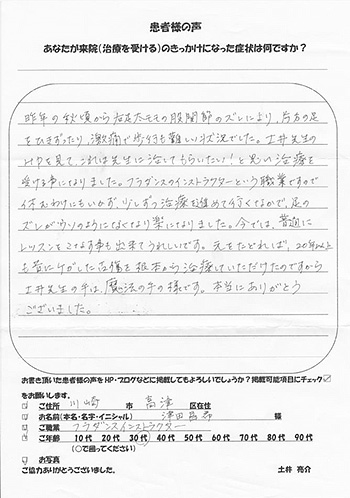 患者様の声
あなたが来院(治療を受ける)のきっかけになった症状は何ですか?
昨年の秋頃から右足太モモの股関節のズレにより、片方の足
をひきずったり、激痛で歩行も難しい状況でした。土井先生の
HPを見て、これは先生に治してもらいたい!と思い治療を
受ける事になりました。フラダンスのインストラクターという職業ですので
休むわけにもいかず、少しずつ治療を進めて行くなかで、足の
ズレがウソのようになくなり楽になりました。今では、普通に
レッスンをこなす事も出来てうれしいです。元をたどれば、20年以上
も昔にケガした古傷を根本から治療していただけたのですから
土井先生の手は、魔法の手の様です。本当にありがとう
ございました。
お書き頂いた患者様の声をHP・ブログなどに掲載してもよろしいでしょうか?掲載可能項目にチェック☑
をお願いします。
ご住所 川崎 市 高津 区在住
お名前(本名・名字・イニシャル) 津田 様
ご職業 フラダンスインストラクター
ご年齢 10代 20代 30代 40代 50代 60代 70代 80代 90代
(○で囲ってください)
お写真
ご協力ありがとうございました。 土井 亮介